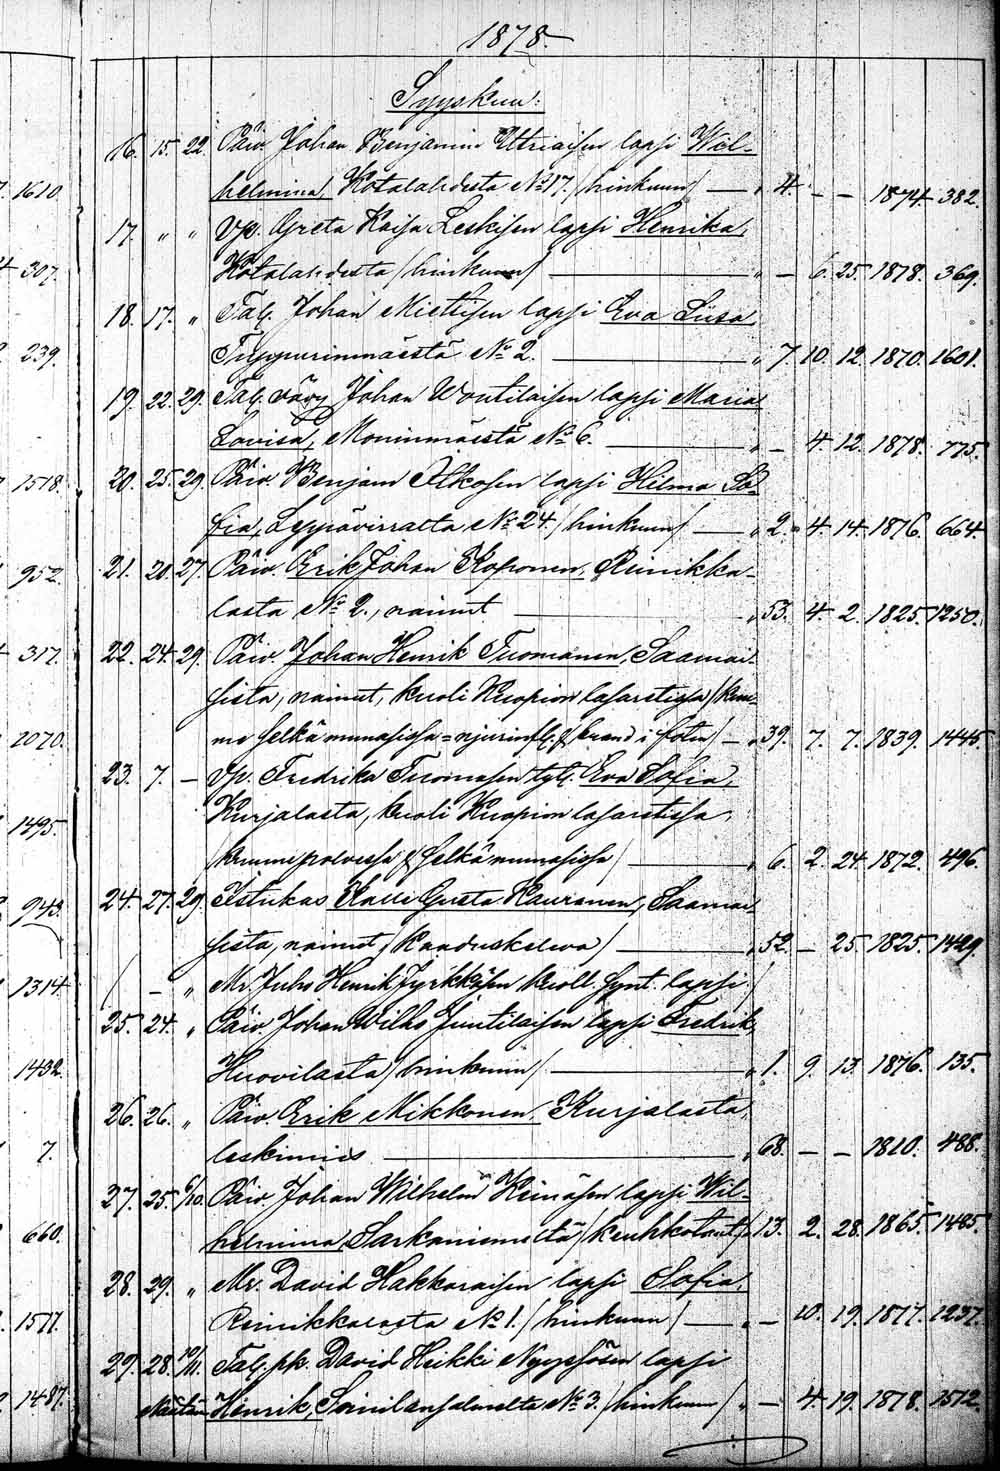 1878.
Syyskuu:
16. 15. 22. Päiv. Johan Benjamin Uttriaisen lapsi Wil-
1610. helmina, Kotalahdesta No 17. /hinkuun/ — " 4. – – 1874. 382.
17. " " Vp. Greta Kaisa Leskisen lapsi Henrika,
307. Kotalahdesta /hinkuun/ — " – 6. 25. 1878. 369.
18. 17. " Tal. Johan Miettisen lapsi Eva Liisa,
239. Timpurinmäestä No 2. — " 7. 10. 12. 1870. 1601.
19. 22. 29. Tal. vävy Johan Woutilaisen lapsi Maria
Lovisa, Moninmäestä No 6. — " – 4. 12. 1878. 775.
1518. 20. 25. 29. Päiv. Benjam Ålkosen lapsi Hilma So-
fia, Leppävirralta No 24. /hinkuun/ — " 2. 4. 14. 1876. 664.
952. 21. 20. 27. Päiv. Erik Johan Koponen, Reinikka-
lasta No 2., nainut — " 53. 4. 2. 1825. 1250.
317. 22. 24. 29. Päiv. Johan Henrik Tuomanen, Saamai-
sista, nainut, kuoli Kuopion lasaretissa /kuu-
2070. me selkä munasissa = njurinfl. & brand i foten/ — " 39. 7. 7. 1839. 1445.
23. 7. – Vp. Fredrika Tuomasen tyt. Eva Sofia,
1495. Kurjalasta, kuoli Kuopion lasaretissa
/kuume polvessa & selkä munasissa/ — " 6. 2. 24. 1872. 496.
943. 24. 27. 29. Istukas Kalle Gusta Kauranen, Saamai-
sista, nainut /kaaduskeleva/ — " 52. – 25. 1825. 1429.
1314. / – " Mr. Juho Henrik Jyrkkäsen kuoll. synt. lapsi /
25. 24. " Päiv. Johan Wilho Juntilaisen lapsi Fredrik,
1432. Huovilasta /hinkuun/ — " 1. 9. 13. 1876. 135.
26. 26. " Päiv. Erik Mikkonen, Kurjalasta,
7. leskimies — " 68. – – 1810. 488.
27. 25. 6/10. Päiv. Johan Wilhelm Keinäsen lapsi Wil-
660. helmina, Sarkaniemeltä /keuhkotauti/ " 13. 2. 28. 1865. 1485.
28. 29. " Mr. David Hakkaraisen lapsi Sofia,
1517. Reinikkalasta No 1. /hinkuun/ — " – 10. 19. 1877. 1237.
29. 28. 10/11. Tal. pk. David Heikki Nyyssösen lapsi
1487. Henrik, Soinilansalmelta No 3. /hinkuun/ " – 4. 19. 1878. 1512.